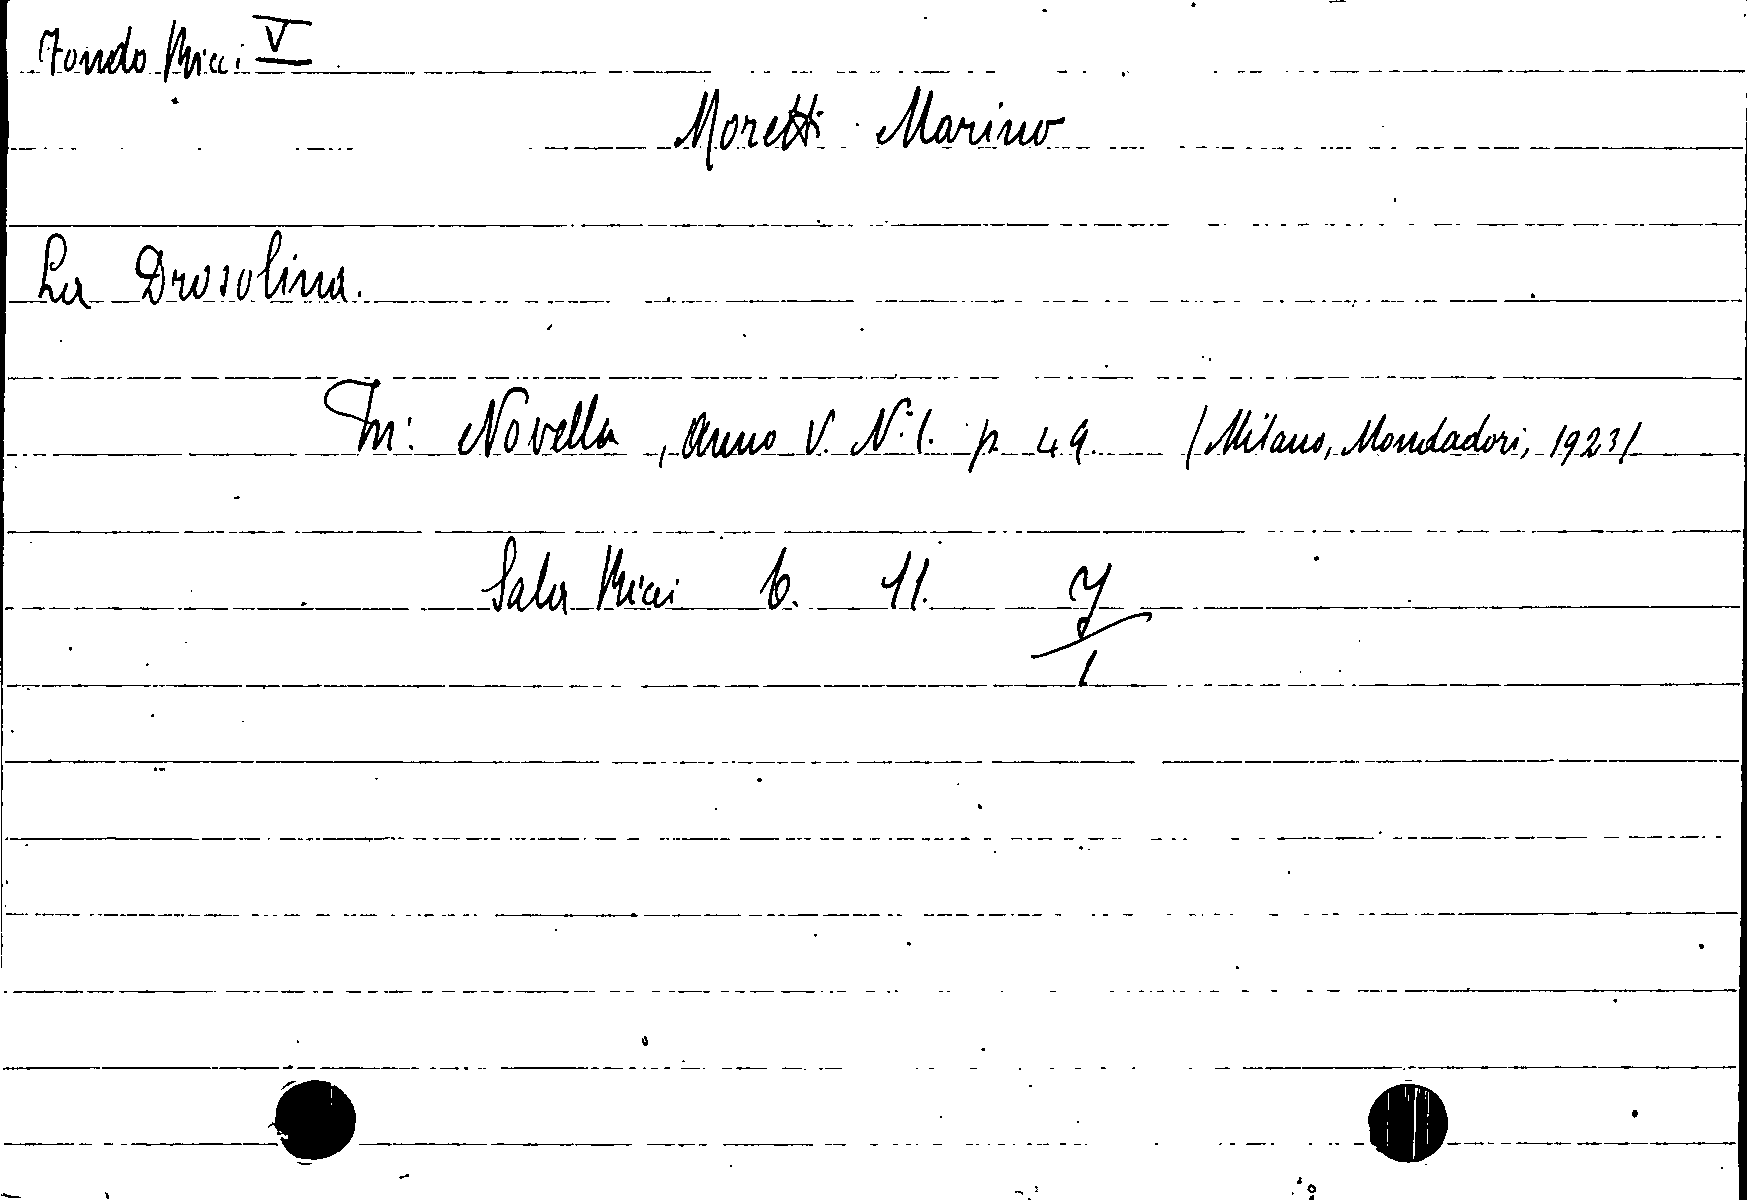 Fondo Ricci V
Moretti Marino
La Drosolina.
In: Novella, anno V. N. 1. p. 49. (Milano, Mondadori, 1923)
Sala Ricci 6. 11. Y/1